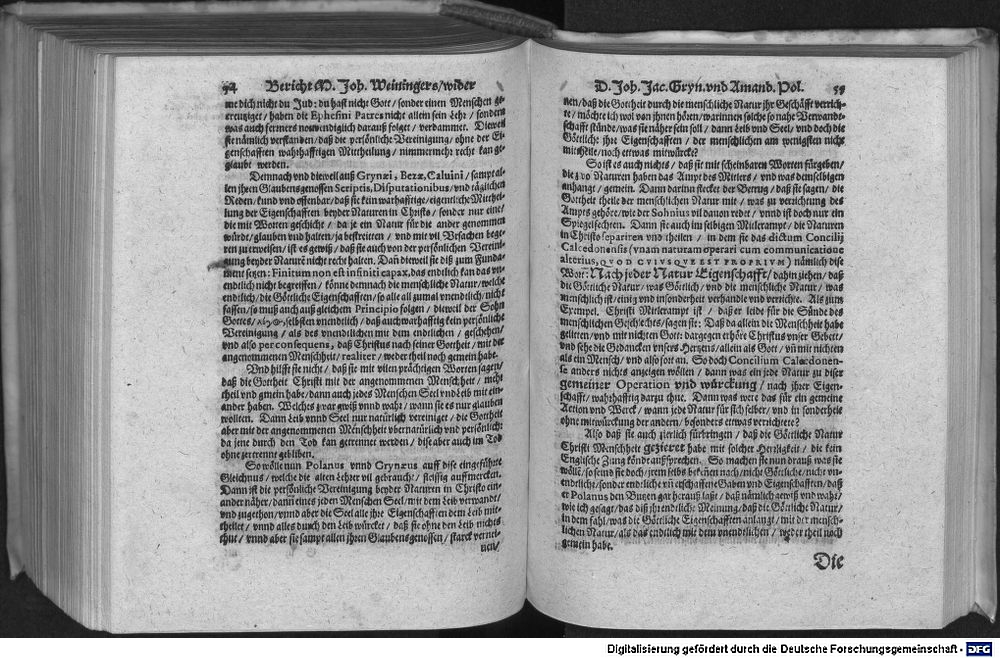 94 Bericht M. Joh. Weiningers/wider
me dich nicht du Jud: du hast nicht Gott / sonder einen Menschen ge-
creutziget / haben die Ephesini Patres nicht allein sein Lehr / sondern
was auch ferrners notwendiglich darauß folget / verdammet. Dieweil
sie nämlich verstanden / daß die persönliche Vereinigung / ohne der Ei-
genschafften wahrhafftigen Mittheilung / nimmermehr recht kan ge-
glaubt werden.
Demnach vnd dieweil auß Grynæi, Bezæ, Caluini / sampt al-
len jhren Glaubensgenossen Scriptis, Disputationibus / vnd täglichen
Reden / kund vnd offenbar / daß sie kein warhafftige / eigentliche Mitthei-
lung der Eigenschafften beyder Naturen in Christo / sonder nur eine /
die mit Worten geschicht / da je ein Natur für die ander genommen
würde / glauben vnd halten / ja bestreitten / vnd mit vil Vrsachen bege-
ren zu erweisen / ist es gewiß / daß sie auch von der persönlichen Vereini-
gung beyder Naturē nicht recht halten. Dañ dieweil sie diß zum Funda-
ment setzen: Finitum non est infiniti capax, das endlich kan das vn-
endlich nicht begreiffen / könne demnach die menschliche Natur / welche
endlich / die Göttliche Eigenschafften / so alle all zumal vnendlich / nicht
fassen / so muß auch auß gleichem Principio folgen / dieweil der Sohn
Gottes / selbsten vnendlich / daß auch warhafftig kein persönliche
Vereinigung / als des vnendlichen mit dem endlichen / geschehen /
vnd also per consequens, daß Christus nach seiner Gottheit / mit der
angenommenen Menschheit / realiter / weder theil noch gemein habe.
Vnd hilfft sie nicht / daß sie mit vilen prächtigen Worten sagen /
daß die Gottheit Christi mit der angenommenen Menschheit / mehr
theil vnd gmein habe / dann auch jedes Menschen Seel vnd Leib mit ein-
ander haben. Welches zwar gwiß vnnd wahr / wann sie es nur glauben
wolten. Dann Leib vnnd Seel nur natürlich vereiniget / die Gottheit
aber mit der angenommenen Menschheit vbernatürlich vnd persönlich:
da jene durch den Tod kan getrennet werden / dise aber auch im Tod
ohne zertrennt gebliben.
So wölle nun Polanus vnnd Grynæus auff dise eingeführte
Gleichnus / welche die alten Lehrer vil gebraucht / fleissig auffmercken.
Dann ist die persönliche Vereinigung beyder Naturen in Christo ein-
ander näher / dann eines jeden Menschen Seel / mit dem Leib verwandt
vnd zugethon / vnnd aber die Seel alle jhre Eigenschafften dem Leib mit-
theilet / vnnd alles durch den Leib würcket / daß sie ohne den Leib nichts
thut / vnnd aber sie sampt allen jhren Glaubensgenossen / starck vernei-
nen /
D. Joh. Jac. Gryn. vnd Amand. Pol. 95
nen / daß die Gottheit durch die menschliche Natur jhr Geschäfft verrich-
te / möchte ich wol von jhnen hören / warinnen solche so nahe Verwandt-
schafft stünde / was sie näher sein soll / dann Leib vnd Seel / vnd doch die
Göttliche jhre Eigenschafften / der menschlichen am wenigsten nicht
mittheile / noch ettwas mitwürcke?
So ist es auch nichts / daß sie mit scheinbaren Worten fürgeben /
die zwo Naturen haben das Ampt des Mitlers / vnd was demselbigen
anhangt / gemein. Dann darinn stecket der Betrug / daß sie sagen / die
Gottheit theile der menschlichen Natur mit / was zu verrichtung des
Ampts gehöre / wie der Sohnius vil dauon redet / vnnd ist doch nur ein
Spiegelfechten. Dann sie auch im selbigen Mitlerampt / die Naturen
in Christo separiren vnd theilen / in dem sie das dictum Concilij
Calcedonensis (vnam naturam operari cum communicatione
alterius, QVOD CVIVSQVE EST PROPRIVM) nämlich dise
Wort: Nach jeder Natur Eigenschafft / dahin ziehen / daß
die Göttliche Natur / was Göttlich / vnd die menschliche Natur / was
menschlich ist / einig vnd insonderheit verhandle vnd verrichte. Als zum
Exempel. Christi Mitlerampt ist / daß er leide für die Sünde des
menschlichen Geschlechts / sagen sie: Daß da allein die Menschheit habe
gelitten / vnd mit nichten Gott: dargegen erhöre Christus vnser Gebett /
vnd sehe die Gedancken vnsers Hertzens / allein als Gott / vñ mit nichten
als ein Mensch / vnd also fort an. So doch Concilium Calcedonen-
se anders nichts anzeigen wöllen / dann was ein jede Natur zu diser
gemeiner Operation vnd würckung / nach jhrer Eigen-
schafft / wahrhafftig darzu thue. Dann was were das für ein gemeine
Action vnd Werck / wann jede Natur für sich selber / vnd in sonderheit
ohne mitwürckung der andern / besonders ettwas verrichtete?
Also daß sie auch zierlich fürbringen / daß die Göttliche Natur
Christi Menschheit gezieret habe mit solcher Herrligkeit / die kein
Englische Zung könde außsprechen. So machen sie nun drauß was sie
wöllē / so seind sie doch / jrem selbs bekeñen nach / nicht Göttliche / nicht vn-
endtliche / sonder endtliche vñ erschaffene Gaben vnd Eigenschafften / daß
er Polanus den Butzen gar herauß laßt / daß nämlich gewiß vnd wahr /
wie ich gesagt / das diß jhr endtliche Meinung / daß die Göttliche Natur /
in dem fahl / was die Göttliche Eigenschafften anlangt / mit der mensch-
lichen Natur / als das endtlich mit dem vnendtlichen / weder theil noch
gemein habe.
Die
Digitalisierung gefördert durch die Deutsche Forschungsgemeinschaft - DFG